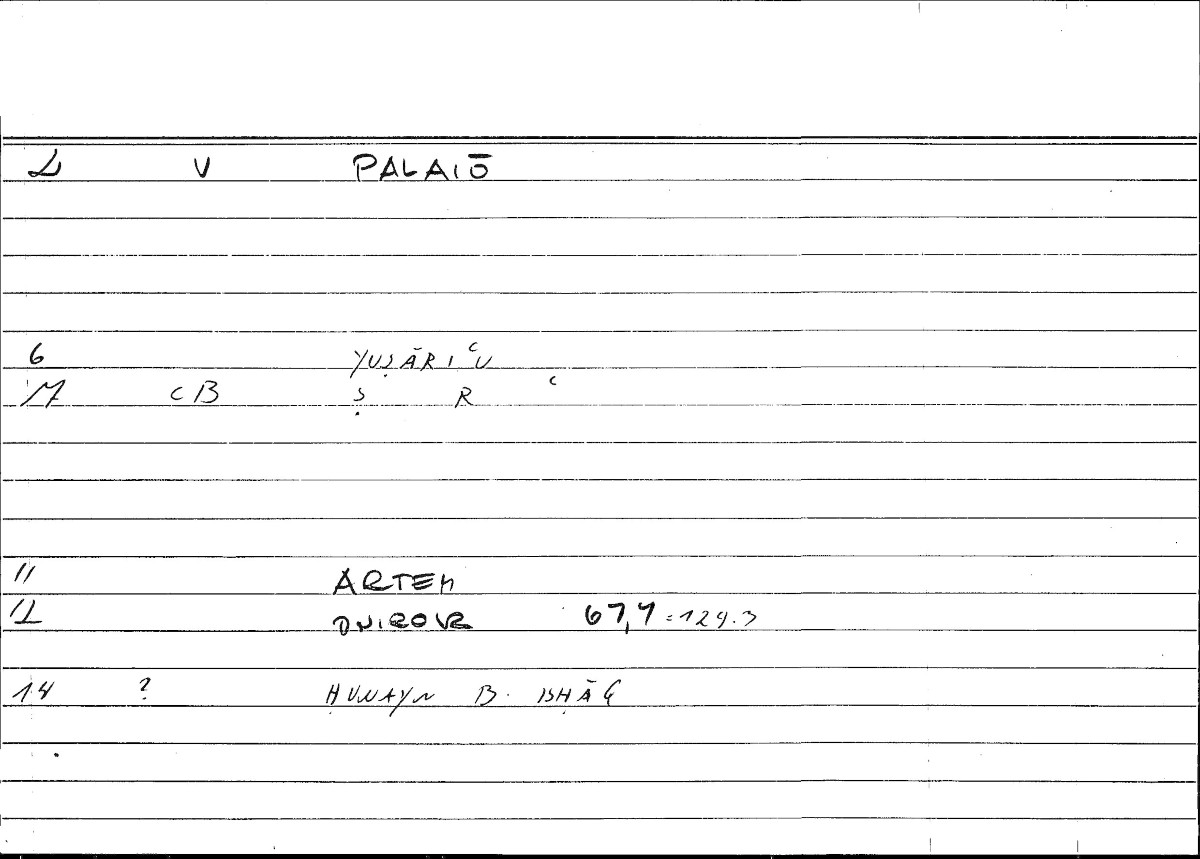 2 V PALAIŌ
6 YUṢĀRIʿU
17 CB Ṣ R ʿ
11 ARTEM
12 ONIROKR 67,4 = 129.3
14 ? ḤUNAYN B. ISḤĀQ